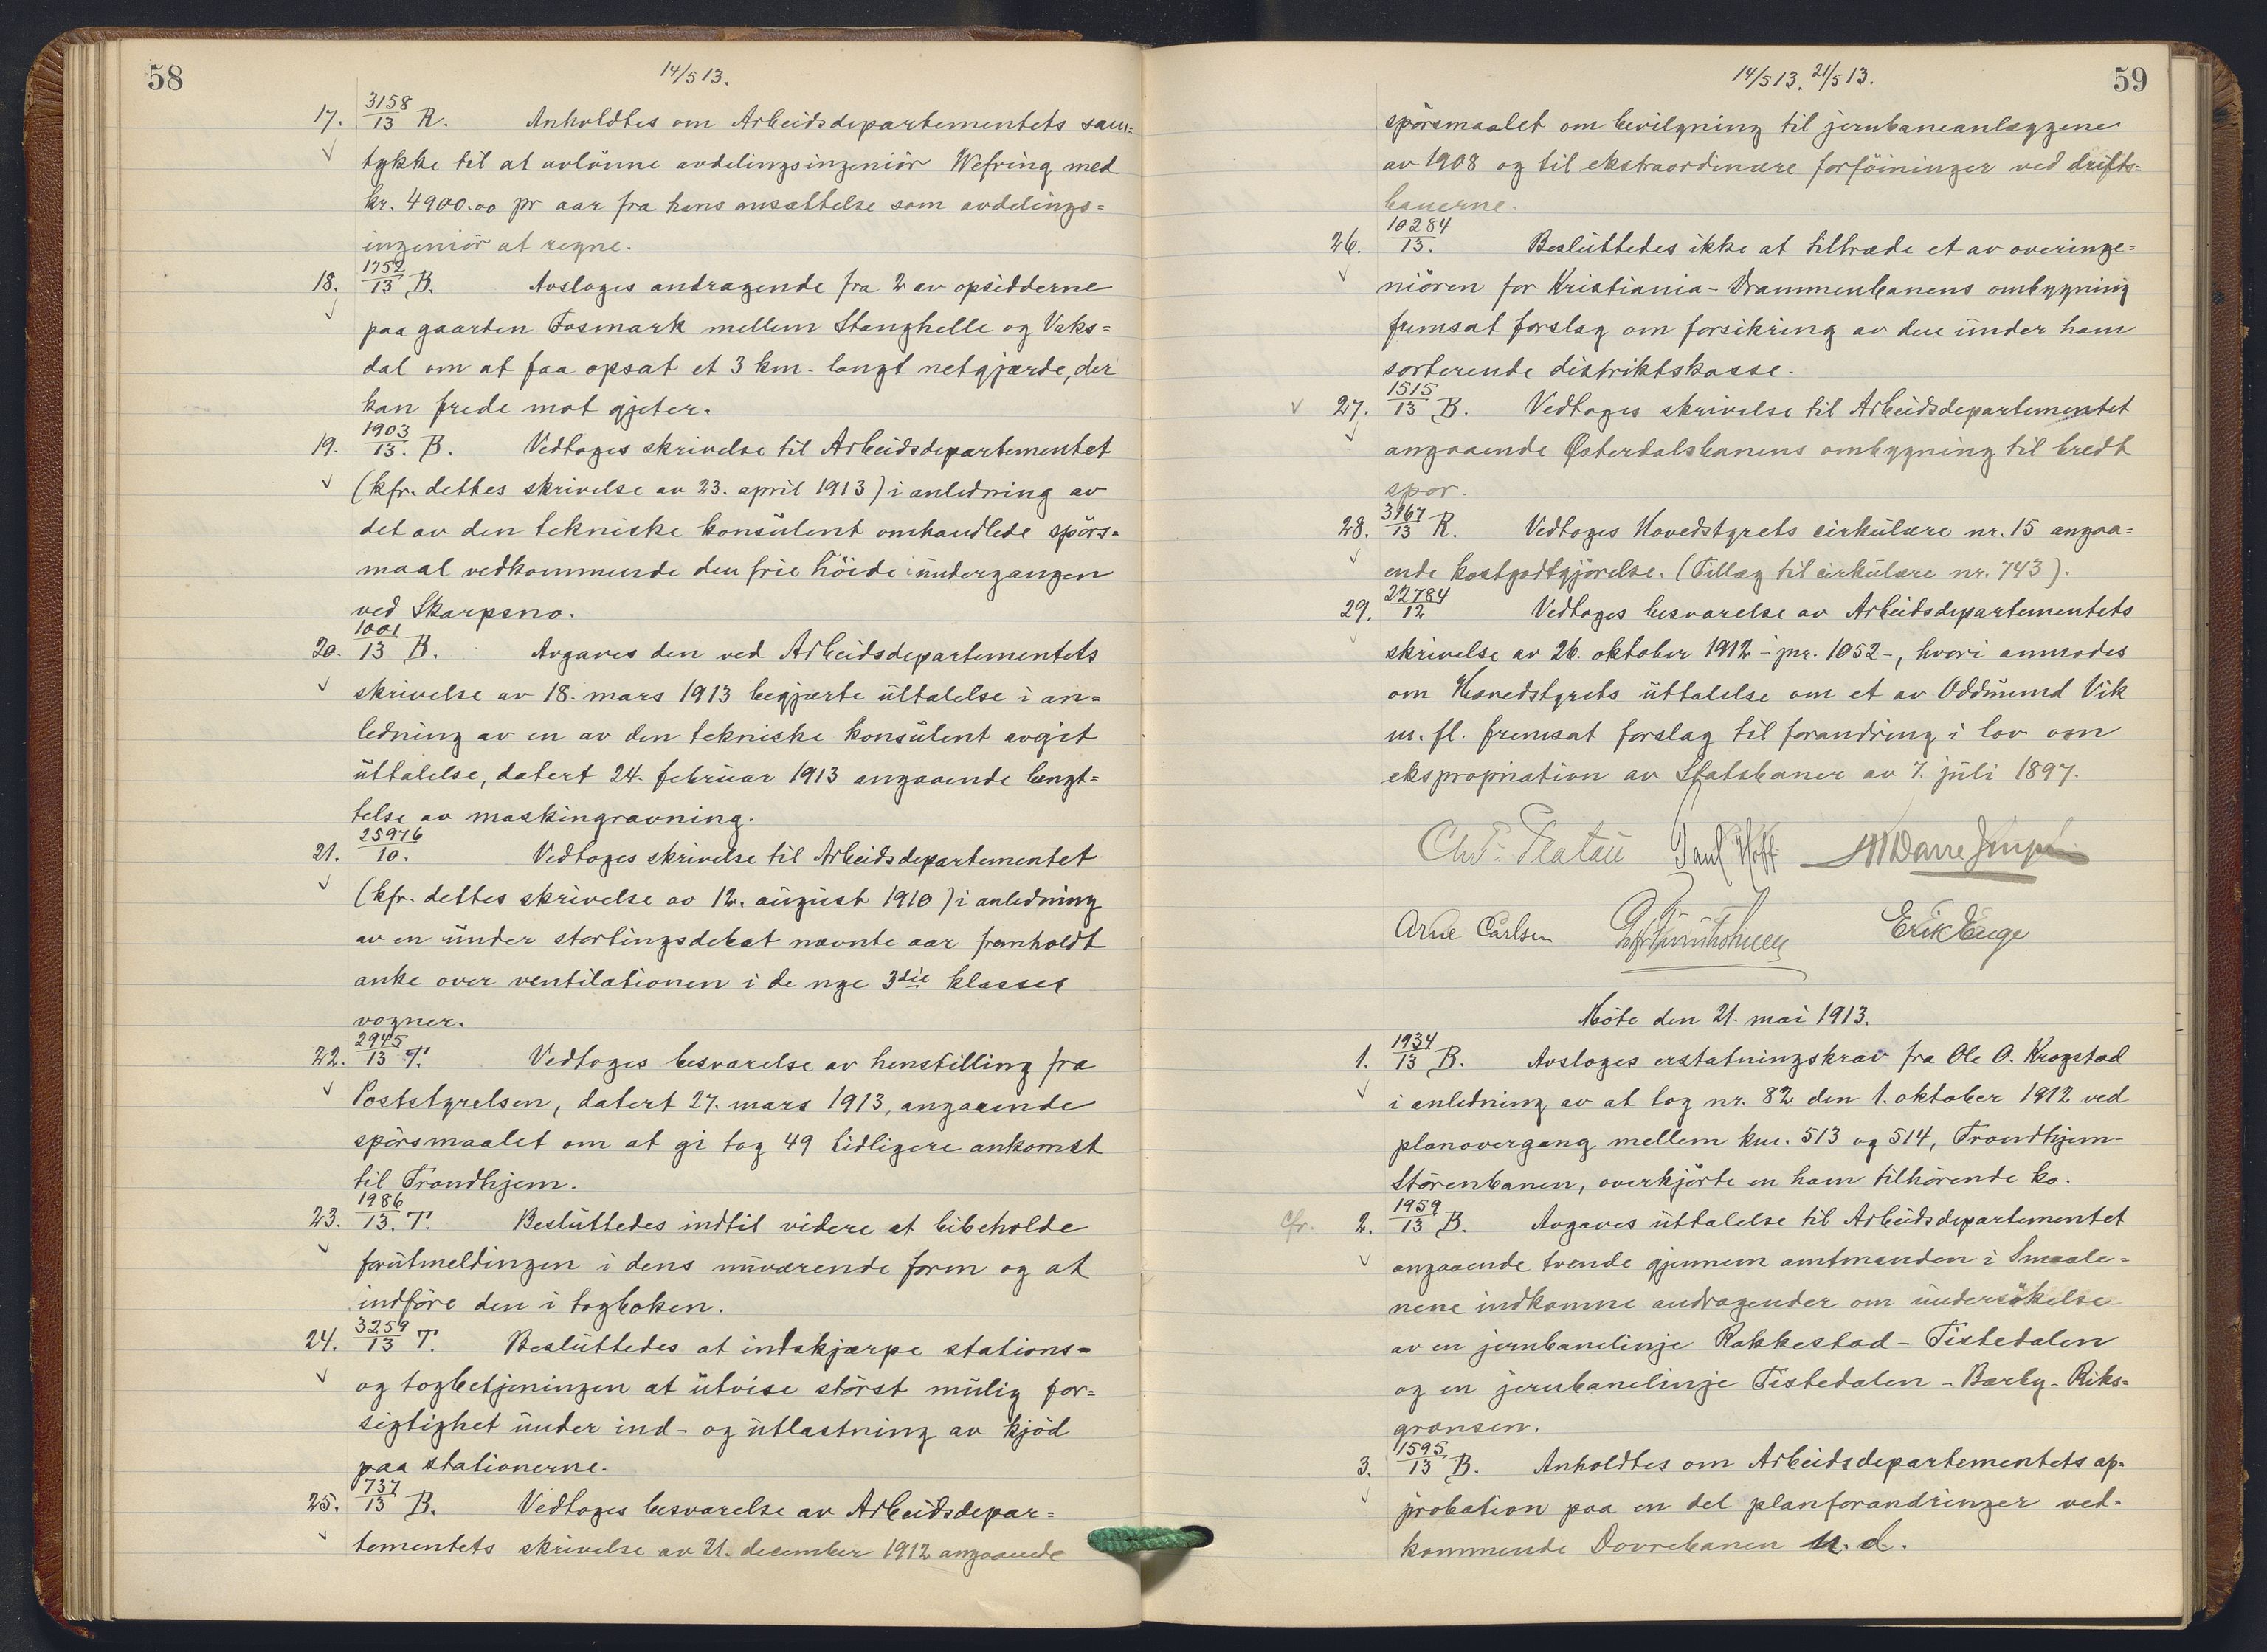 58
14/5 13.
17. 3158/13 R. Anholdtes om Arbeidsdepartementets sam=
tykke til at avlönne avdelingsingeniör Wefring med
kr. 4900.00 pr aar fra hans ansættelse som avdelings=
ingeniör at regne.
18. 1752/13 B. Avsloges andragende fra 2 av opsidderne
paa gaarden Fosmark mellem Stanghelle og Vaks=
dal om at faa opsat et 3 km. langt netgjærde, der
kan frede mot gjeter.
19. 1903/13. B. Vedtoges skrivelse til Arbeidsdepartementet
(kfr. dettes skrivelse av 23. april 1913) i anledning av
det av den tekniske konsulent omhandlede spörs=
maal vedkommende den frie höide i undergangen
ved Skarpsno.
20. 1001/13 B. Avgaves den ved Arbeidsdepartementets
skrivelse av 18. mars 1913 begjærte uttalelse i an=
ledning av en av den tekniske konsulent avgit
uttalelse, datert 24. februar 1913 angaaende benyt=
telse av maskingravning.
21. 25976/10. Vedtoges skrivelse til Arbeidsdepartementet
(kfr. dettes skrivelse av 12. august 1910) i anledning
av en under stortingsdebat nævnte aar fremholdt
anke over ventilationen i de nye 3die klasses
vogner.
22. 2945/13 T. Vedtoges besvarelse av henstilling fra
Poststyrelsen, datert 27. mars 1913, angaaende
spörsmaalet om at gi tog 49 tidligere ankomst
til Trondhjem.
23. 1986/13. T. Besluttedes indtil videre at bibeholde
forutmeldingen i dens nuværende form og at
indföre den i togboken.
24. 3259/13 T. Besluttedes at indskjærpe stations=
og togbetjeningen at utvise störst mulig for=
sigtighet under ind- og utlastning av kjöd
paa stationerne.
25. 737/13 B. Vedtoges besvarelse av Arbeidsdepar=
tementets skrivelse av 21. december 1912 angaaende
14/5 13. 21/5 13.
59
spörsmaalet om bevilgning til jernbaneanlæggene
av 1908 og til ekstraordinære forföininger ved drifts=
banerne.
26. 10284/13. Besluttedes ikke at tiltræde et av overinge=
niören for Kristiania-Drammenbanens ombygning
fremsat forslag om forsikring av den under ham
sorterende distriktskasse.
27. 1515/13 B. Vedtoges skrivelse til Arbeidsdepartementet
angaaende Østerdalsbanens ombygning til bredt
spor.
28. 3167/13 R. Vedtoges Hovedstyrets cirkulære nr. 15 angaa=
ende kostgodtgjörelse. (Tillæg til cirkulære nr. 743).
29. 22784/12 Vedtoges besvarelse av Arbeidsdepartementets
skrivelse av 26. oktober 1912 - jnr. 1052 -, hvori anmodes
om Hovedstyrets uttalelse om et av Oddmund Vik
m. fl. fremsat forslag til forandring i lov om
ekspropriation av Statsbaner av 7. juli 1897.
Chr. Platou Paul Hoff
Arne Carlsen Erik Enge
Möte den 21. mai 1913.
1. 1934/13 B. Avsloges erstatningskrav fra Ole O. Krogstad
i anledning av at tog nr. 82 den 1. oktober 1912 ved
planovergang mellem km. 513 og 514, Trondhjem-
Störenbanen, overkjörte en ham tilhörende ko.
cfr. 2. 1959/13 B. Avgaves uttalelse til Arbeidsdepartementet
angaaende tvende gjennem amtmanden i Smaale=
nene indkomne andragender om undersökelse
av en jernbanelinje Rakkestad - Tistedalen
og en jernbanelinje Tistedalen - Bærby - Riks=
grænsen.
3. 1595/13 B. Anholdtes om Arbeidsdepartementets ap=
probation paa en del planforandringer ved=
kommende Dovrebanen n. d.